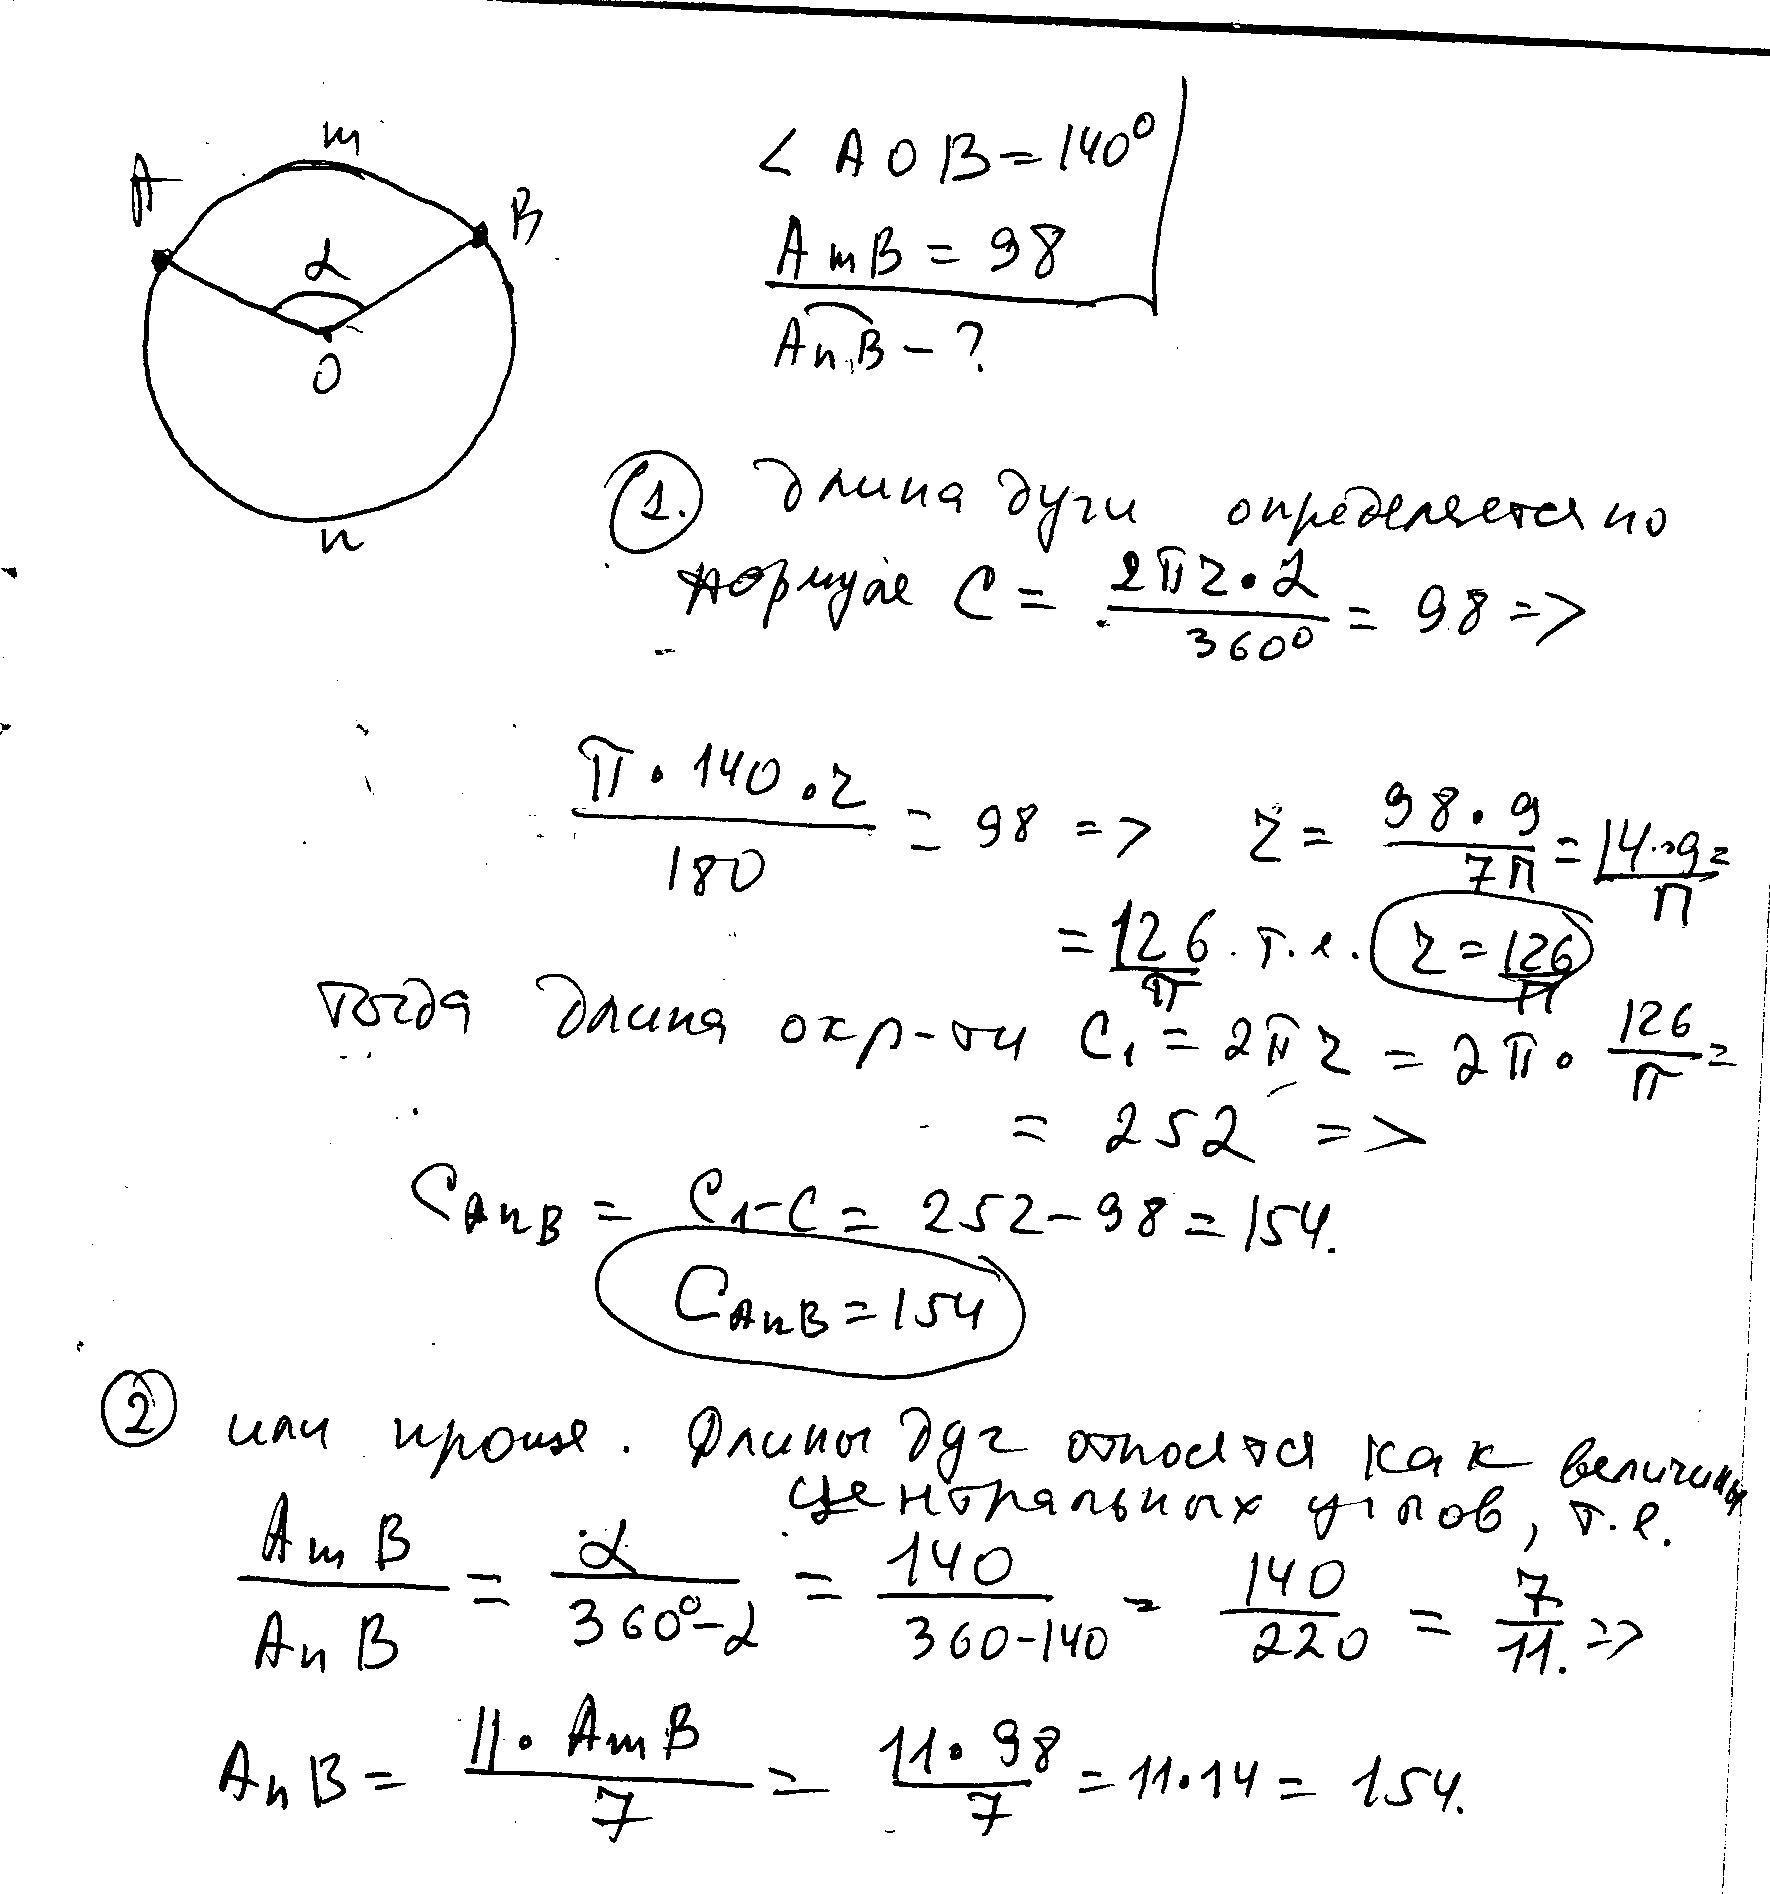 m
A
B
α
O
n
< AOB = 140⁰
AmB = 98
AnB - ?
1. Длина дуги определяется по
формуле C = 2πr · α / 360⁰ = 98 =>
π · 140 · r / 180 = 98 => r = 98 · 9 / 7π = 14 · 9 / π =
= 126 / π . т.е. r = 126 / π
тогда длина окр-ти C₁ = 2πr = 2π · 126 / π =
= 252 =>
C AnB = C₁ - C = 252 - 98 = 154.
C AnB = 154
2 или проще. Длины дуг относятся как величины
центральных углов, т.е.
AmB / AnB = α / 360⁰ - α = 140 / 360 - 140 = 140 / 220 = 7 / 11. =>
AnB = 11 · AmB / 7 = 11 · 98 / 7 = 11 · 14 = 154.